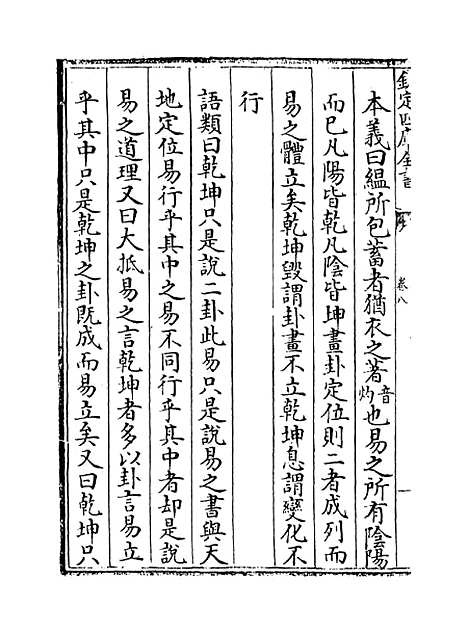 欽定四庫全書
卷八
本義曰緼所包蓄者猶衣之著音灼也易之所有陰陽
而已凡陽皆乾凡陰皆坤畫卦定位則二者成列而
易之體立矣乾坤毀謂卦畫不立乾坤息謂變化不
行
語類曰乾坤只是說二卦此易只是說易之書與天
地定位易行乎其中之易不同行乎其中者却是說
易之道理又曰大抵易之言乾坤者多以卦言易立
乎其中只是乾坤之卦既成而易立矣又曰乾坤只